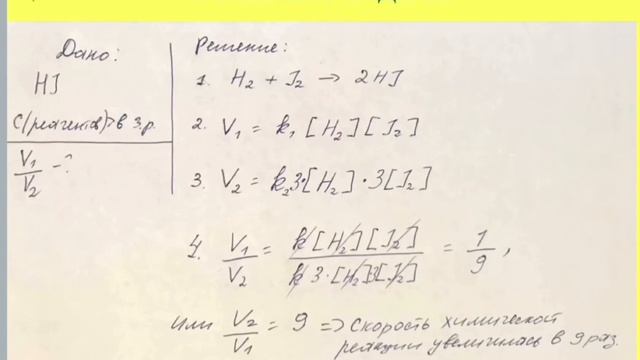 Дано:
HJ
C(реагентов)>в 3 р.
V₁/V₂ - ?
Решение:
1. H₂ + J₂ → 2HJ
2. V₁ = k₁ [H₂][J₂]
3. V₂ = k₂3·[H₂]·3[J₂]
4. V₁/V₂ = k[H₂][J₂]/k 3·[H₂]3[J₂] = 1/9,
или V₂/V₁ = 9 => Скорость химической
реакции увеличилась в 9 раз.